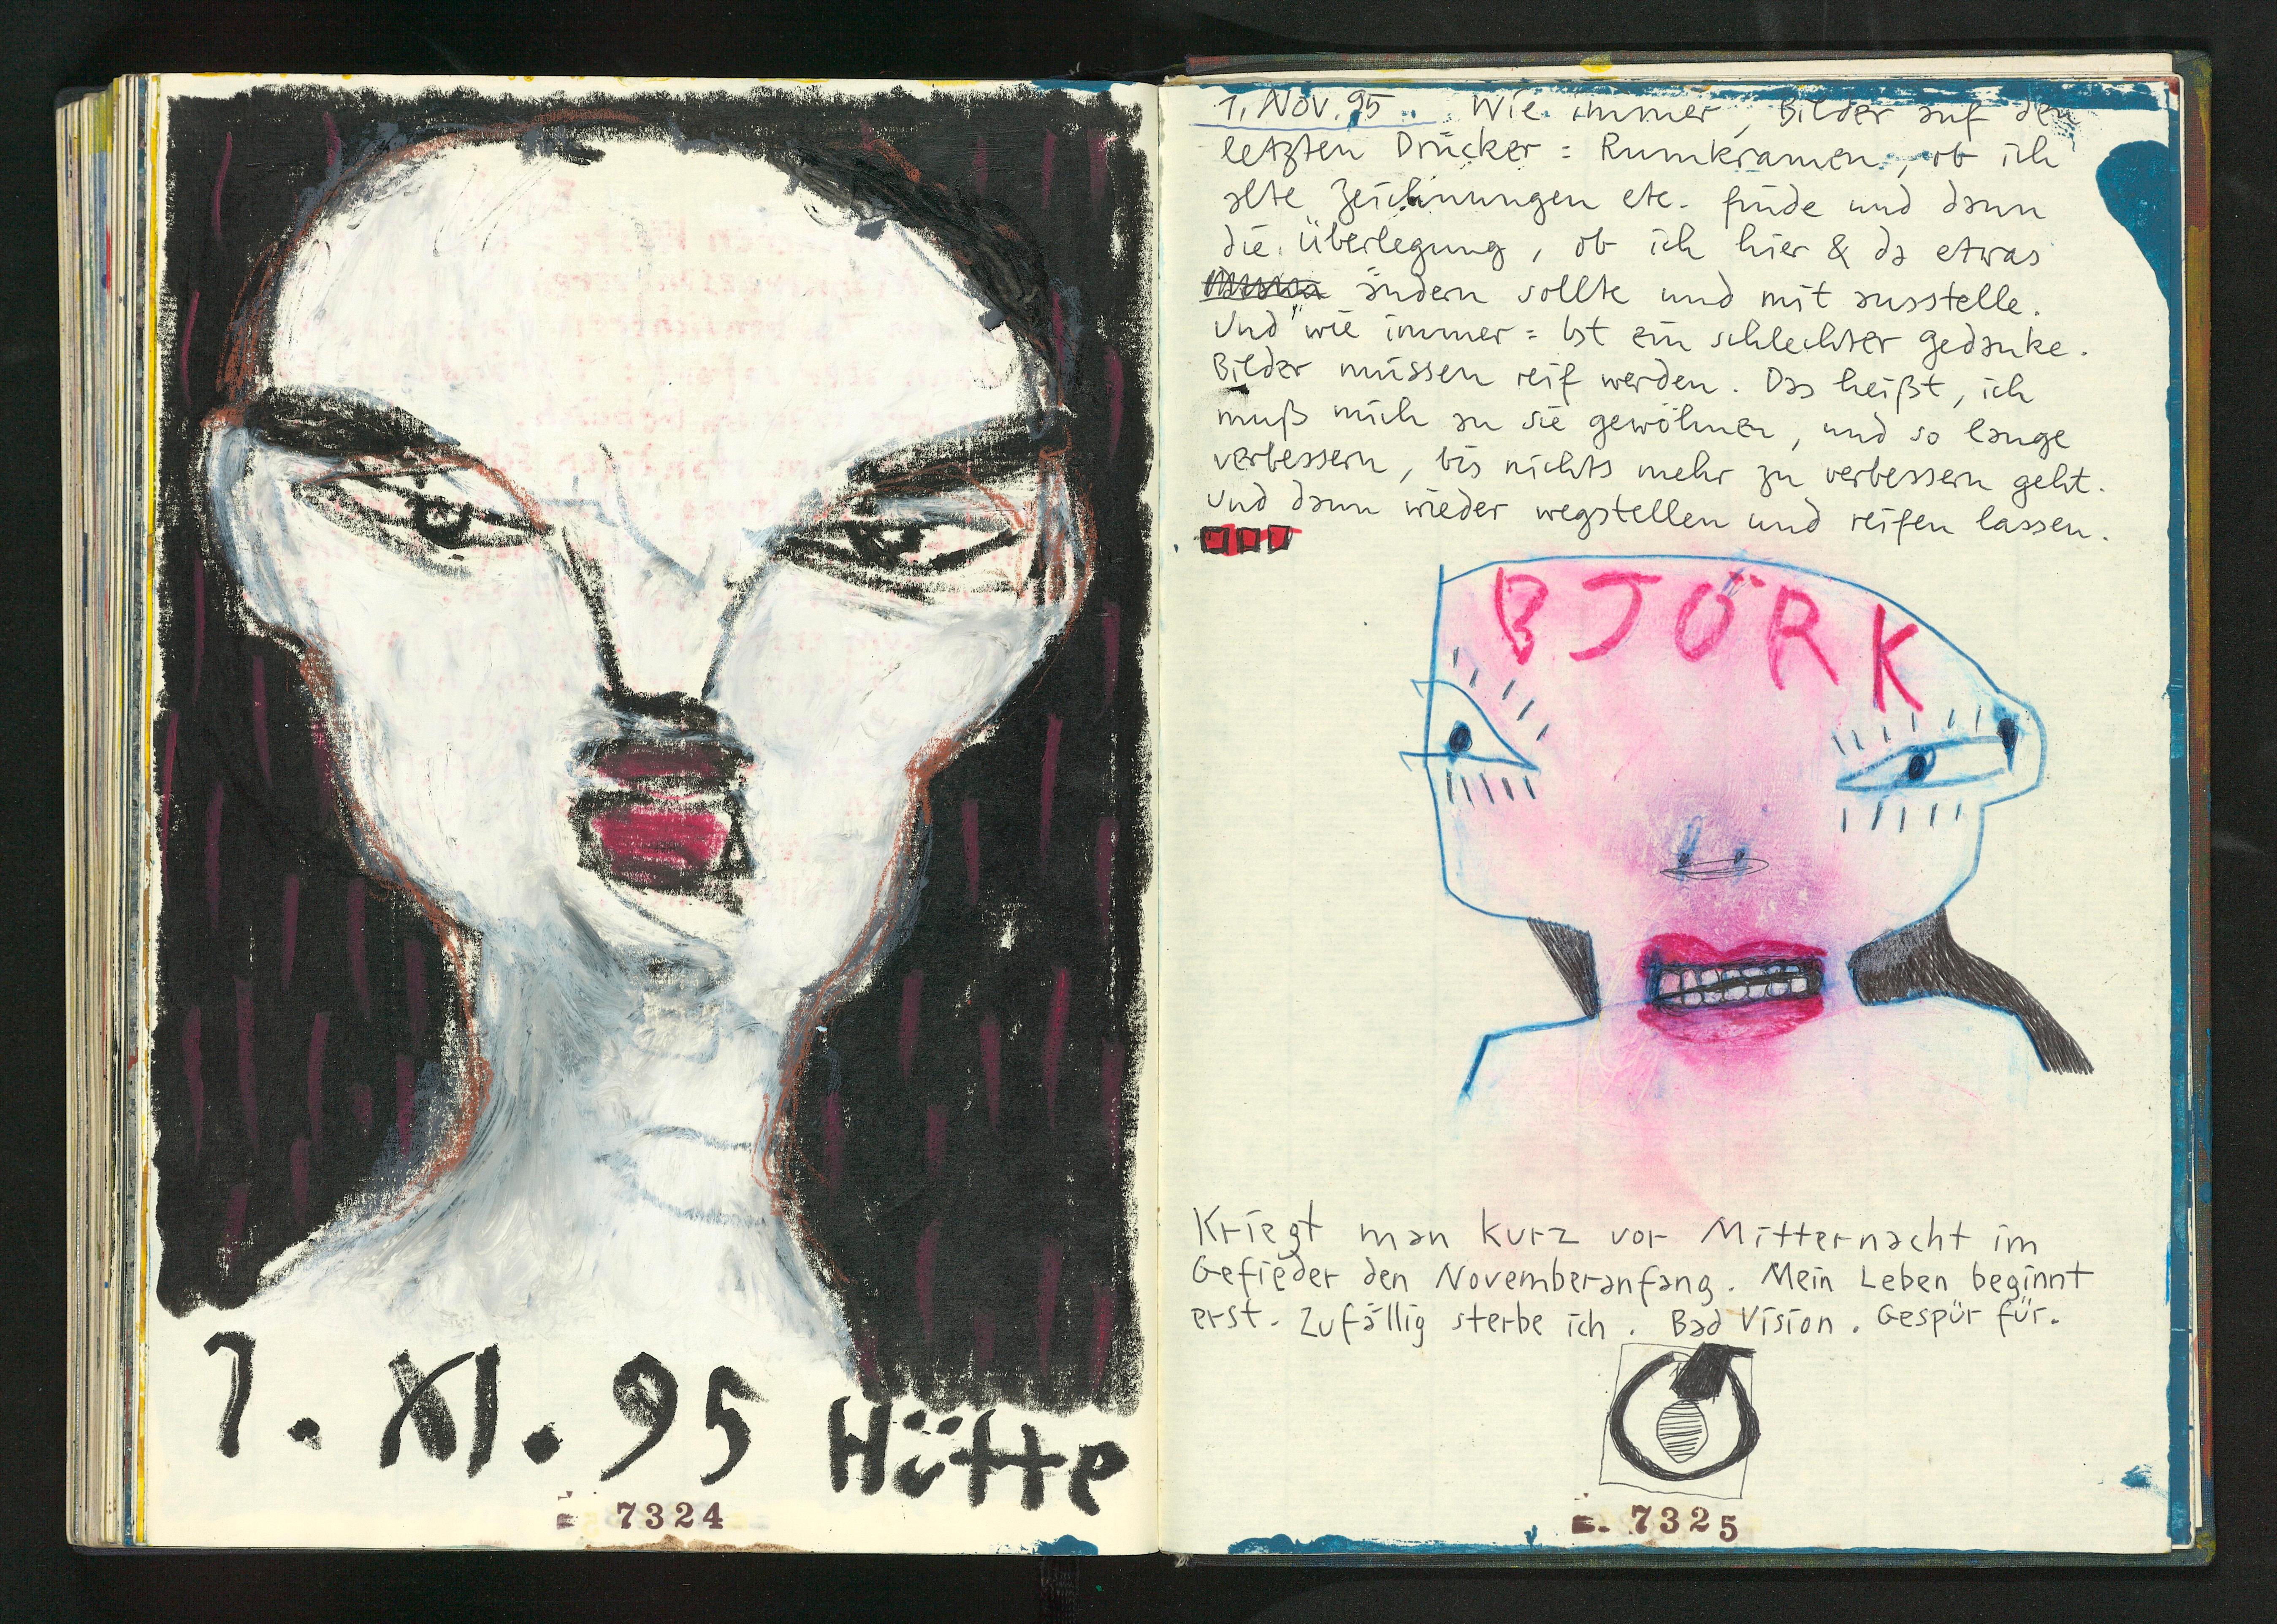 1. XI. 95 Hütte
7324
1. Nov. 95. Wie immer, Bilder auf den
letzten Drücker = Rumkramen, ob ich
alte Zeichnungen etc. finde und dann
die Überlegung, ob ich hier & da etwas
ändern sollte und mit ausstelle.
Und wie immer = Ist ein schlechter Gedanke.
Bilder müssen reif werden. Das heißt, ich
muß mich an sie gewöhnen, und so lange
verbessern, bis nichts mehr zu verbessern geht.
Und dann wieder wegstellen und reifen lassen.
BJÖRK
Kriegt man kurz vor Mitternacht im
Gefieder den Novemberanfang. Mein Leben beginnt
erst. Zufällig sterbe ich. Bad Vision. Gespür für.
7325